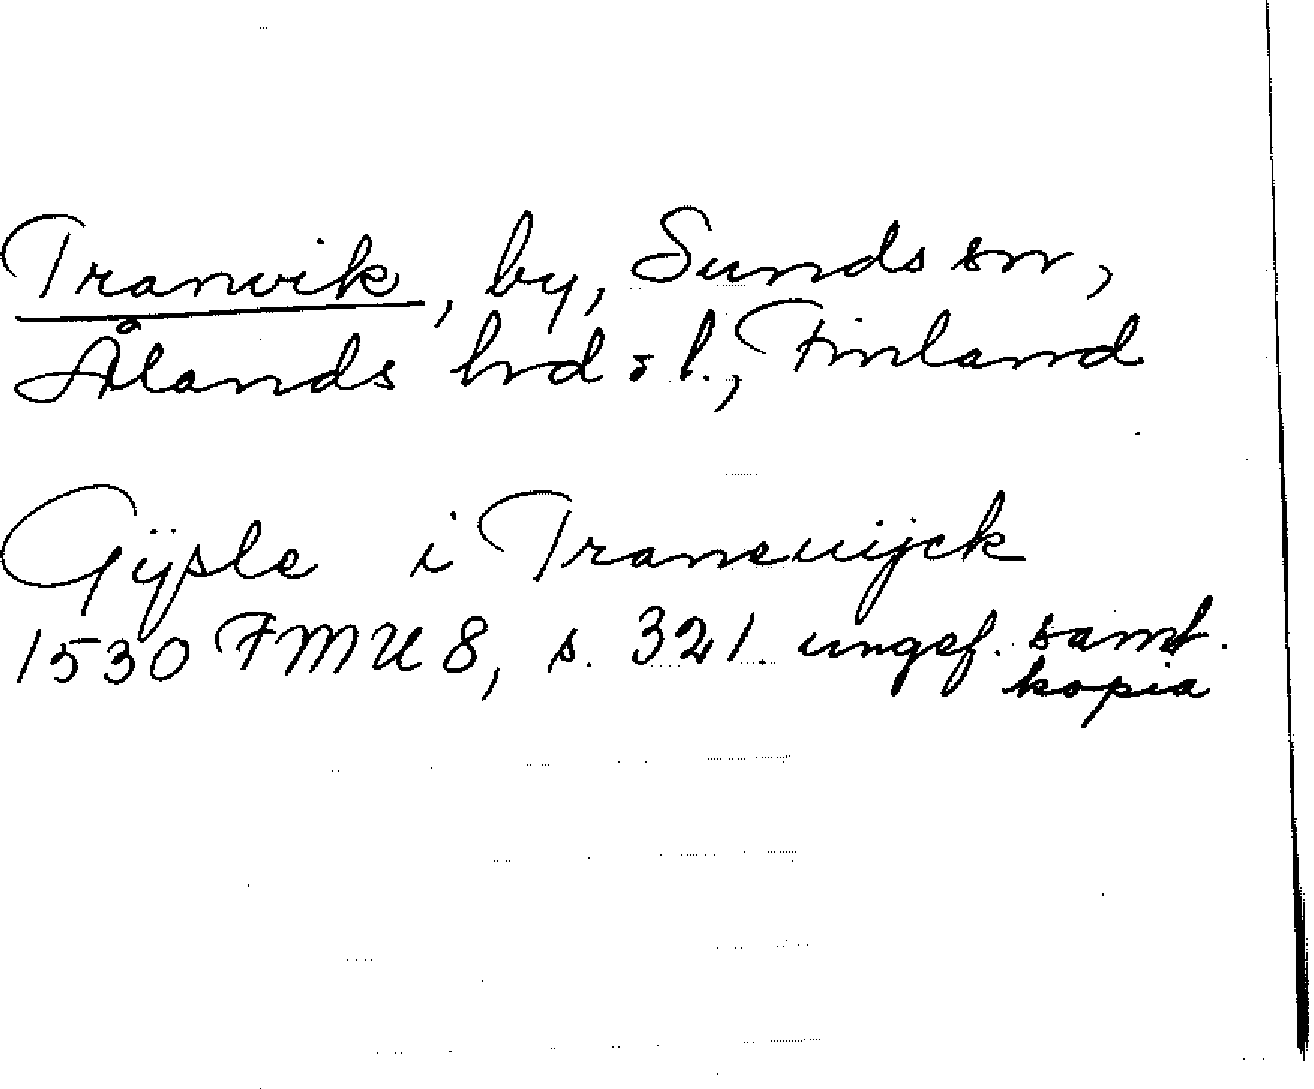 Tranvik, by, Sunds sn,
Ålands hrd o l., Finland
Gijsle i Traneuijck
1530 FMU 8, s. 321. ungef. samt.
kopia